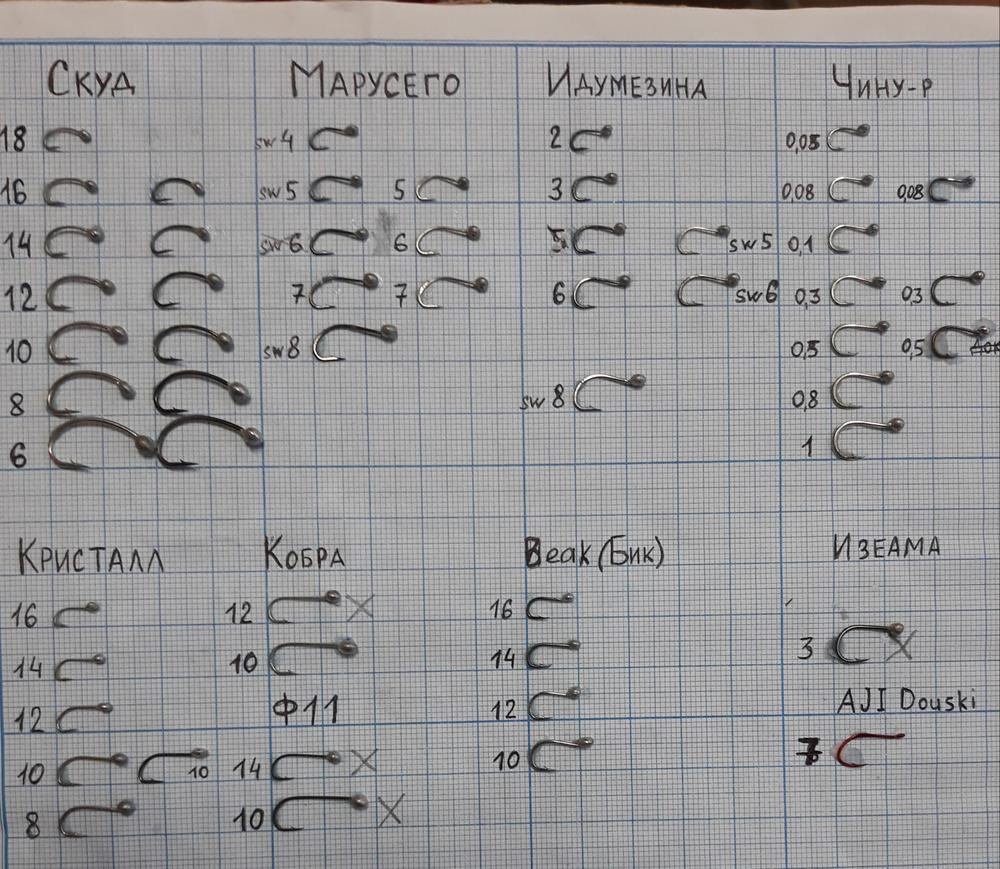 Скуд
18
16
14
12
10
8
6
Марусего
sw4
sw5 5
sw6 6
7 7
sw8
Идумезина
2
3
5 sw5
6 sw6
sw8
Чину-р
0,05
0,08 0,08
0,1
0,3 03
0,5 0,5
0,8
1
Кристалл
16
14
12
10 10
8
Кобра
12 X
10
Ф11
14 X
10 X
Beak (Бик)
16
14
12
10
Изеама
3 X
AJI Douski
7